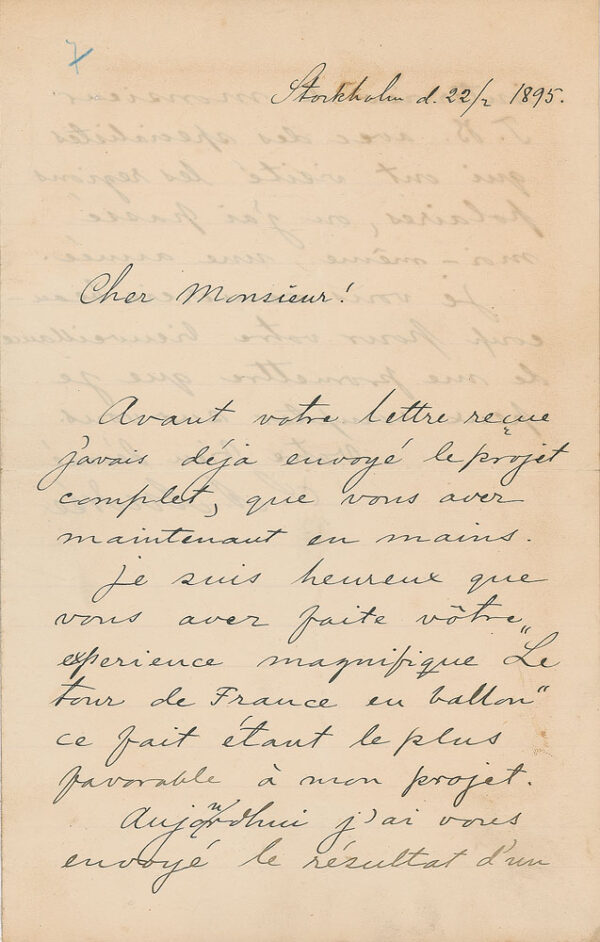 7
Stockholm d. 22/2 1895.
Cher Monsieur!
Avant votre lettre reçue
j'avais déja envoyé le projet
complet, que vous aver
maintenant en mains.
Je suis heureux que
vous aver faite vôtre
experience magnifique "Le
tour de France en ballon"
ce fait étant le plus
favorable à mon projet.
Aujourdhui j'ai vous
envoyé le résultat d'un